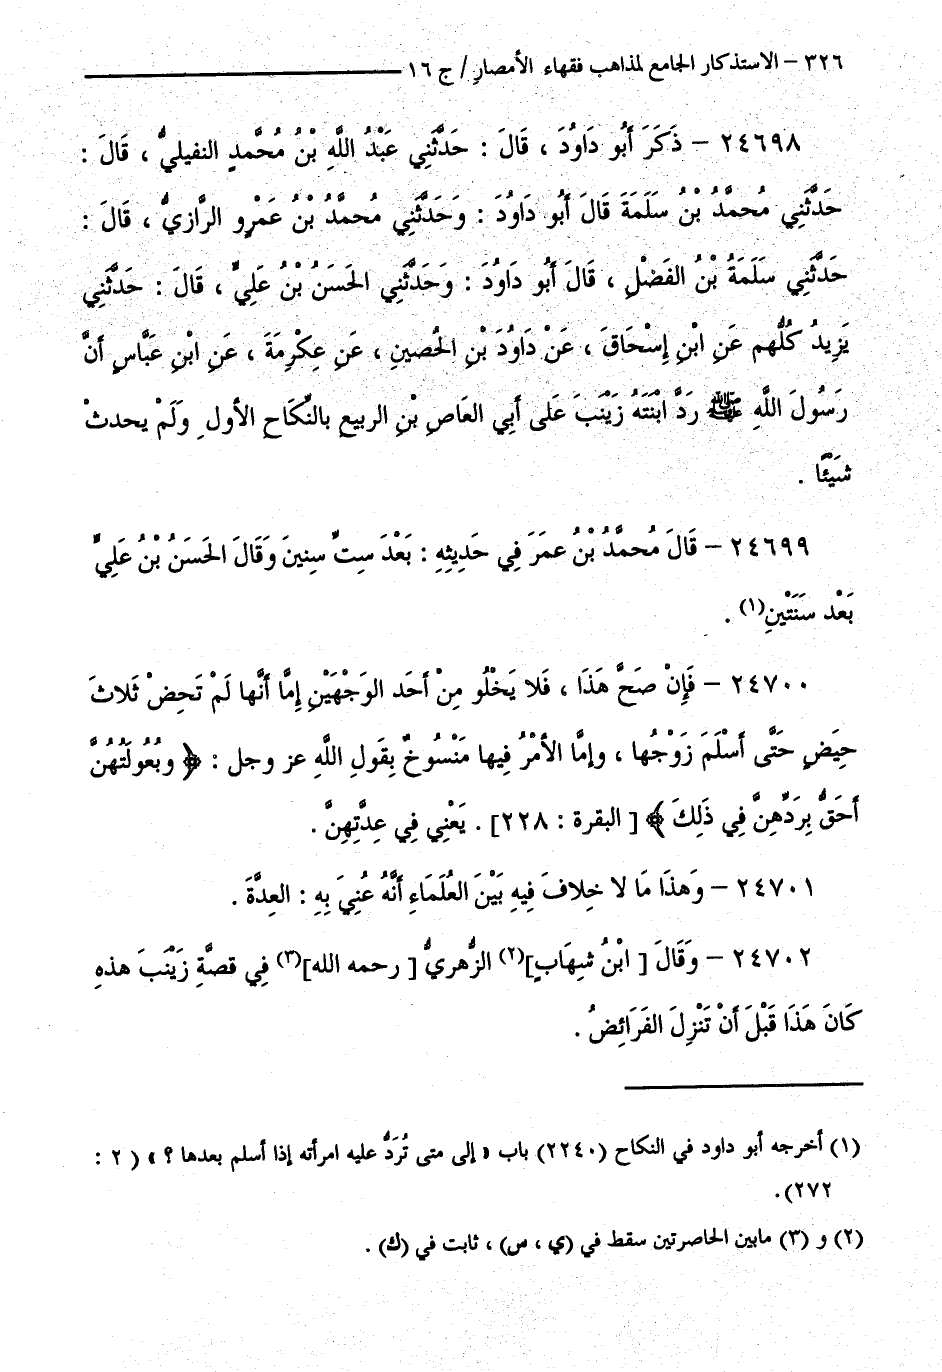 ٣٢٦ – الاستذكار الجامع لمذاهب فقهاء الأمصارِ / ج ١٦
٢٤٦٩٨ – ذَكَرَ أَبُو دَاوُدَ ، قَالَ : حَدَّثَنِي عَبْدُ اللَّهِ بْنُ مُحَمَّدٍ النفيليُّ ، قَالَ :
حَدَّثَنِي مُحمَّدُ بْنُ سَلَمَةَ قَالَ أَبُو دَاوُدَ : وَحَدَّثَنِي مُحمَّدُ بْنُ عَمْرٍو الرَّازيُّ ، قَالَ :
حَدَّثَنِي سَلَمَةُ بْنُ الفَضْلِ ، قَالَ أَبُو دَاوُدَ : وَحَدَّثَنِي الحَسَنُ بْنُ عَلِيٍّ ، قَالَ : حَدَّثَنِي
يَزِيدُ كُلُّهم عَنِ ابْنِ إِسْحَاقَ ، عَنْ دَاوُدَ بْنِ الحُصينِ ، عَنِ عِكْرِمَةَ ، عَنِ ابْنِ عَبَّاسٍ أنَّ
رَسُولَ اللَّهِ ﷺ رَدَّ ابْنَتَهُ زَيْنَبَ عَلى أَبِي العَاصِ بْنِ الربيعِ بالنِّكَاحِ الأولِ وَلَمْ يحدثْ
شَيْئًا .
٢٤٦٩٩ – قَالَ مُحمَّدُ بْنُ عمَرَ فِي حَدِيثِهِ : بَعْدَ ستِّ سِنِينَ وَقَالَ الحَسَنُ بْنُ عَلِيٍّ
بَعْد سَنَتْينِ(١) .
٢٤٧٠٠ – فَإِنْ صَحَّ هَذَا ، فَلا يَخْلُو مِنْ أحَد الوَجْهَيْنِ إِمَّا أَنَّها لَمْ تَحِضْ ثَلاثَ
حِيَضٍ حَتَّى أَسْلَمَ زَوْجُها ، وإمَّا الأمْرُ فِيها مَنْسُوخٌ بِقَولِ اللَّهِ عز وجل : ﴿ وبُعُولَتُهُنَّ
أَحَقُّ بِرَدِّهِنَّ فِي ذَلِكَ ﴾ [ البقرة : ٢٢٨] . يَعْنِي فِي عِدَّتِهِنَّ .
٢٤٧٠١ – وَهذَا مَا لا خِلافَ فِيهِ بَيْنَ العُلَمَاءِ أَنَّهُ عُنِيَ بِهِ : العِدَّةَ .
٢٤٧٠٢ – وَقَالَ [ ابْنُ شِهَابٍ](٢) الزُّهريُّ [ رحمه الله](٣) فِي قصَّةِ زَيْنَبَ هذهِ
كَانَ هَذَا قَبْلَ أَنْ تَنْزِلَ الفَرَائِضُ .
(١) أخرجه أبو داود في النكاح (٢٢٤٠) باب « إلى متى تُرَدُّ عليه امرأته إذا أسلم بعدها ؟ » ( ٢ :
٢٧٢).
(٢) و (٣) مابين الحاصرتين سقط في (ي ، س) ، ثابت في (ك) .